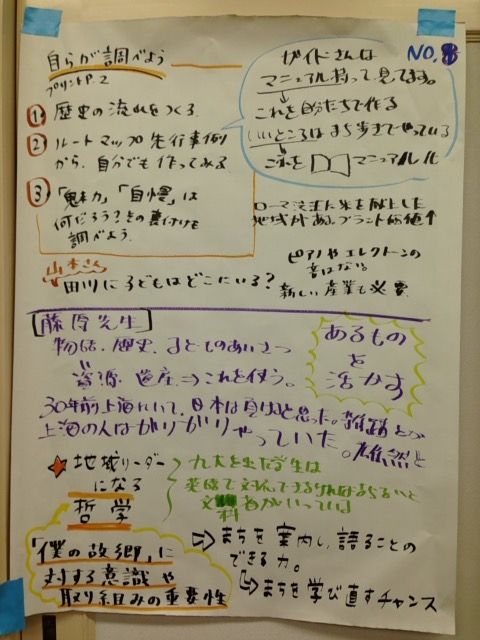 自らが調べよう
プリントP.2
① 歴史の流れをつくる
② ルートマップ先行事例
から、自分でも作ってみる
③ 「魅力」「自慢」は
何だろう?その裏付けも
調べよう
ガイドさんは
マニュアル持って見てます。
これを自分たちで作る
いいところはまち歩きでやっている
これをマニュアル化
NO.8
ローマ法王に米を献上した
地域がある。ブランド価値↑
山本さん
田川に子どもはどこにいる?
ピアノやエレクトーンの
音はない
新しい産業も必要
[藤原先生]
物語、歴史、まとしのあいさつ
資源・遺産⇒これを使う。
30年前上海にいて、日本は負けると思った。雑踏とか
上海の人はガリガリやっていた。雄然と
あるもの
を
活かす
★地域リーダー
になる
哲学
九大を出た学生は
英語で
「僕の故郷」に
対する意識や
取り組みの重要性
⇒まちを案内し、語ることの
できる力。
↳まちを学び直すチャンス